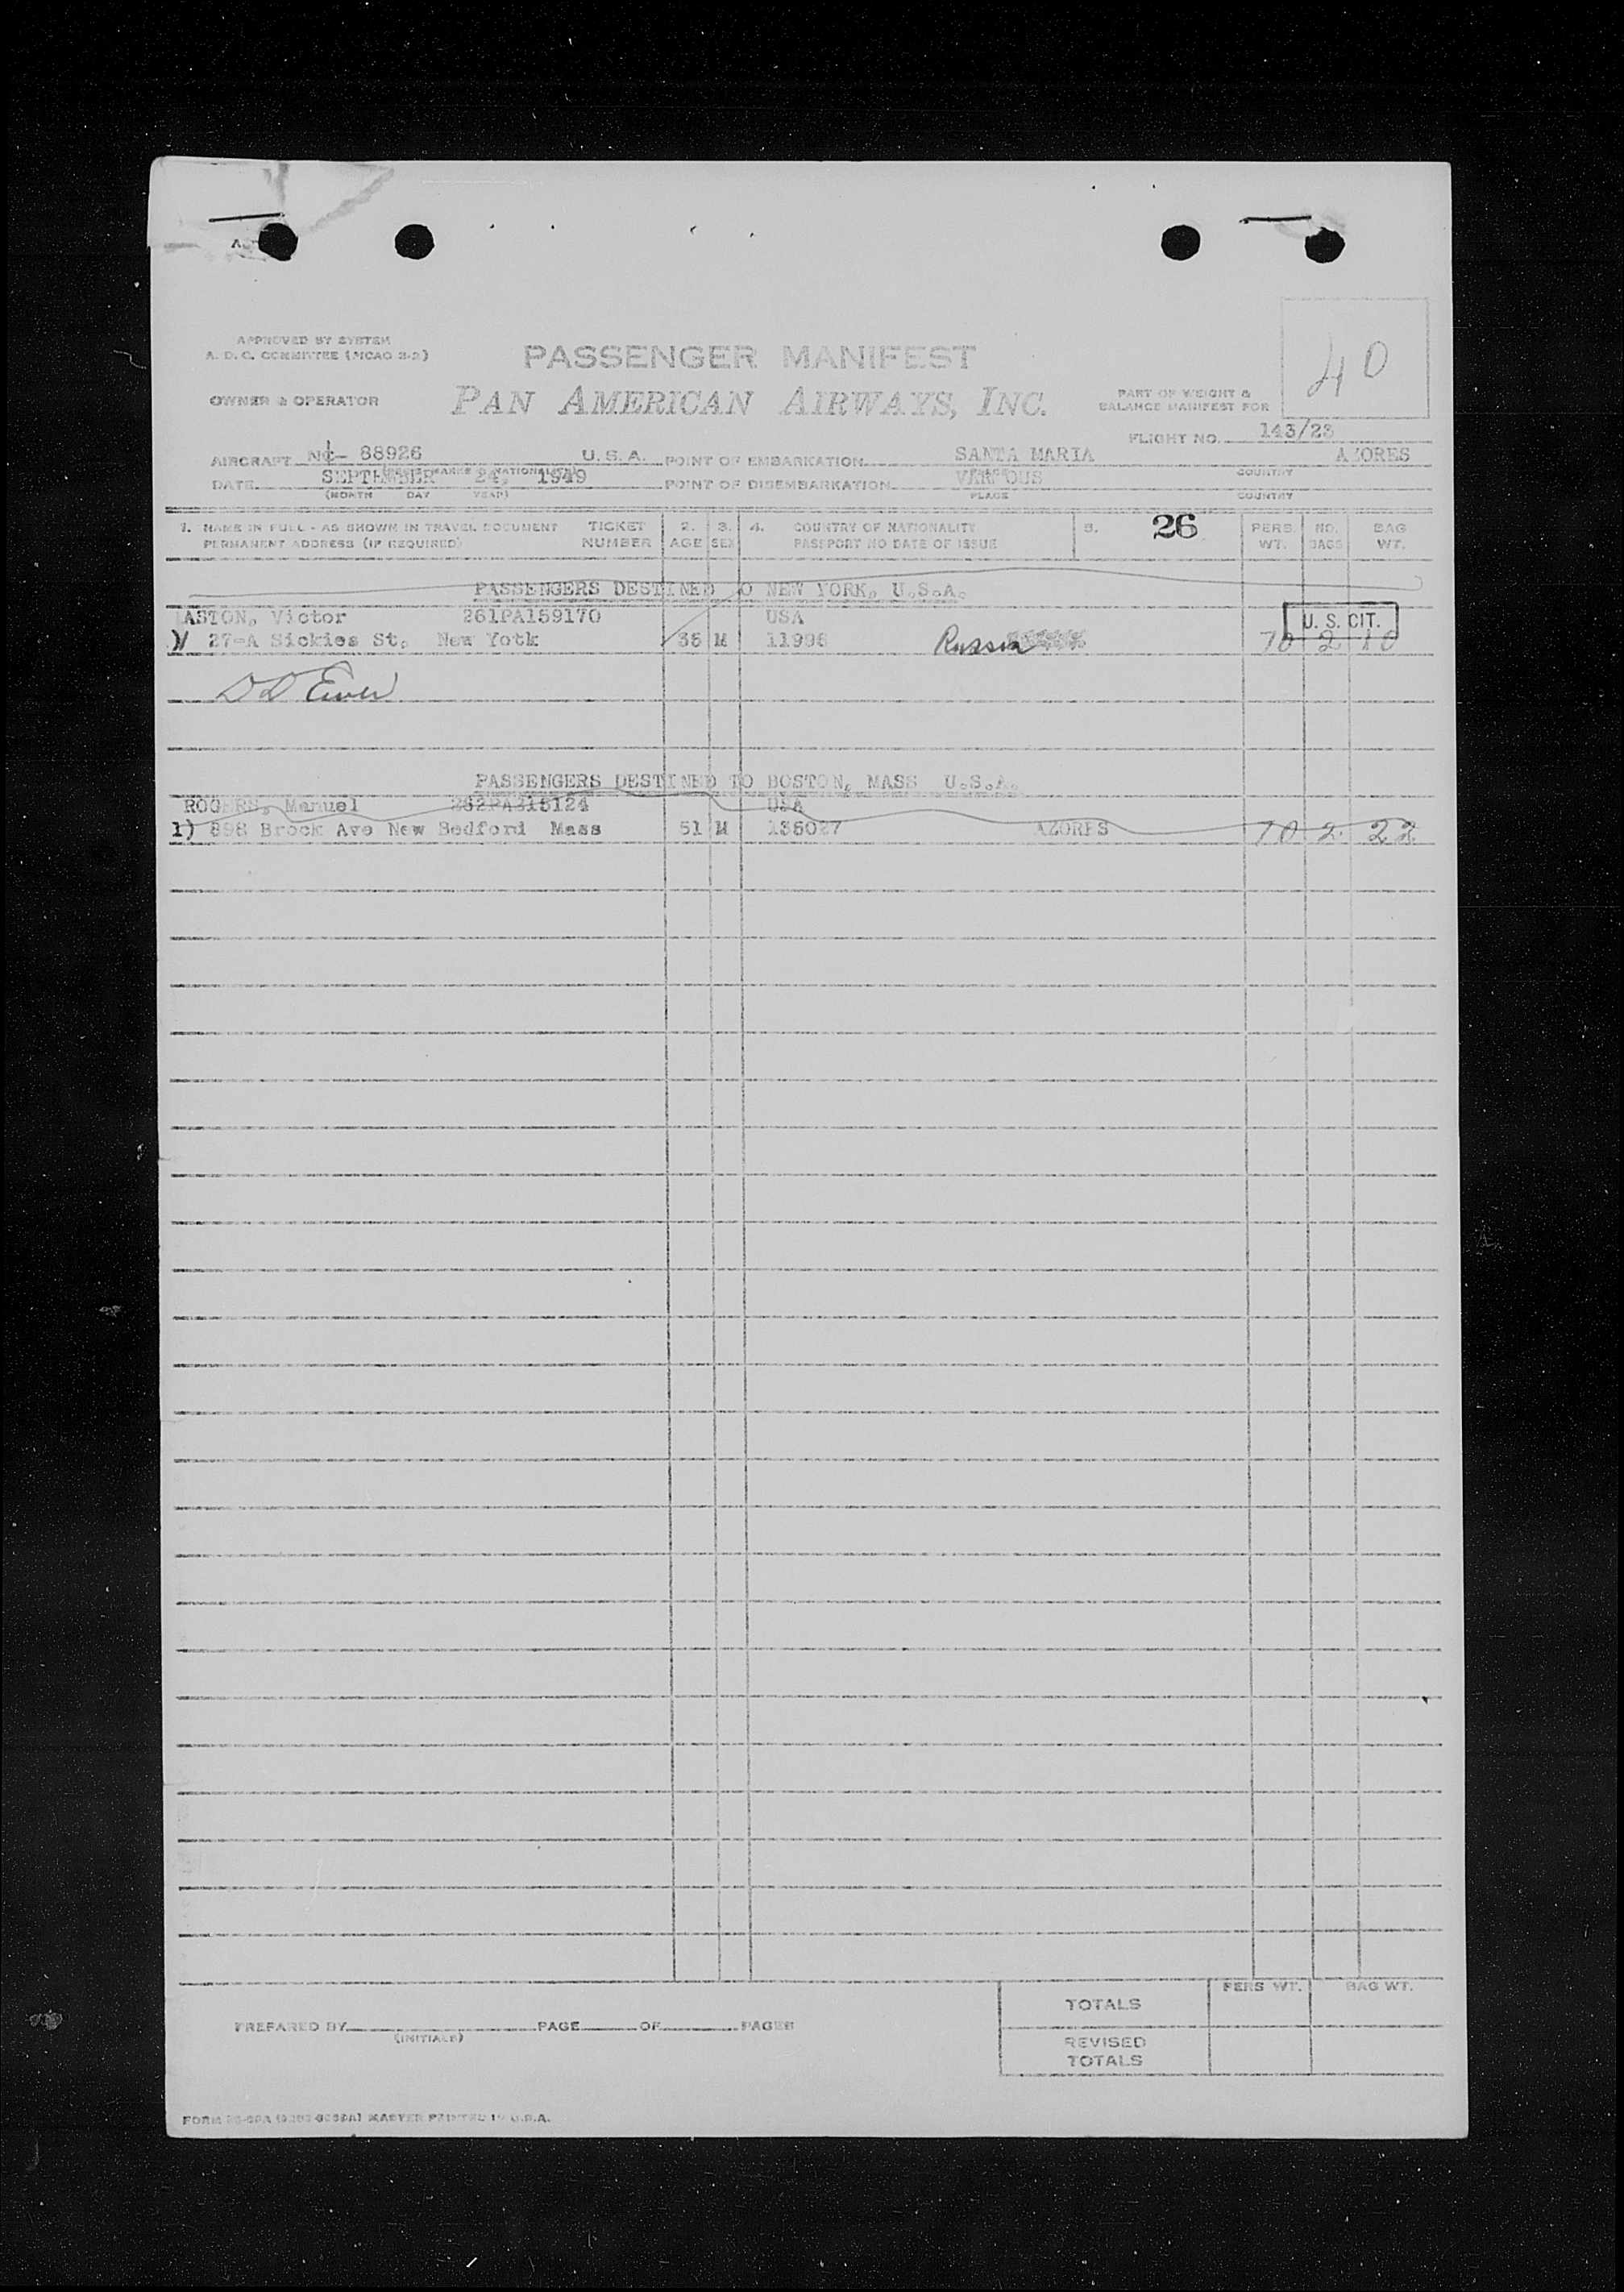 APPROVED BY SYSTEM
A. D. C. COMMITTEE (MCAG 3-2)
PASSENGER MANIFEST
40
OWNER & OPERATOR
PAN AMERICAN AIRWAYS, INC.
PART OF WEIGHT &
BALANCE MANIFEST FOR
FLIGHT NO. 143/23
AIRCRAFT NC- 88926 U. S. A. POINT OF EMBARKATION SANTA MARIA AZORES
DATE SEPTEMBER 24, 1949 POINT OF DISEMBARKATION VARIOUS COUNTRY
(MONTH DAY YEAR) PLACE COUNTRY
1. NAME IN FULL - AS SHOWN IN TRAVEL DOCUMENT TICKET 2. 3. 4. COUNTRY OF NATIONALITY 5. 26 PERS. NO. BAG
PERMANENT ADDRESS (IF REQUIRED) NUMBER AGE SEX PASSPORT NO DATE OF ISSUE WT. BAGS WT.
PASSENGERS DESTINED TO NEW YORK, U.S.A.
ASTON, Victor 261PA159170 USA U. S. CIT.
27-A Sickies St, New Yotk 35 M 11996 Russia 70 2 10
PASSENGERS DESTINED TO BOSTON, MASS U.S.A.
ROGERS, Manuel USA
1) 898 Brock Ave New Bedford Mass 51 M 136027 AZORES 70 2 22
PERS WT. BAG WT.
TOTALS
PREPARED BY PAGE OF PAGES
(INITIALS)
REVISED
TOTALS
FORM MASTER PRINTED IN U.S.A.